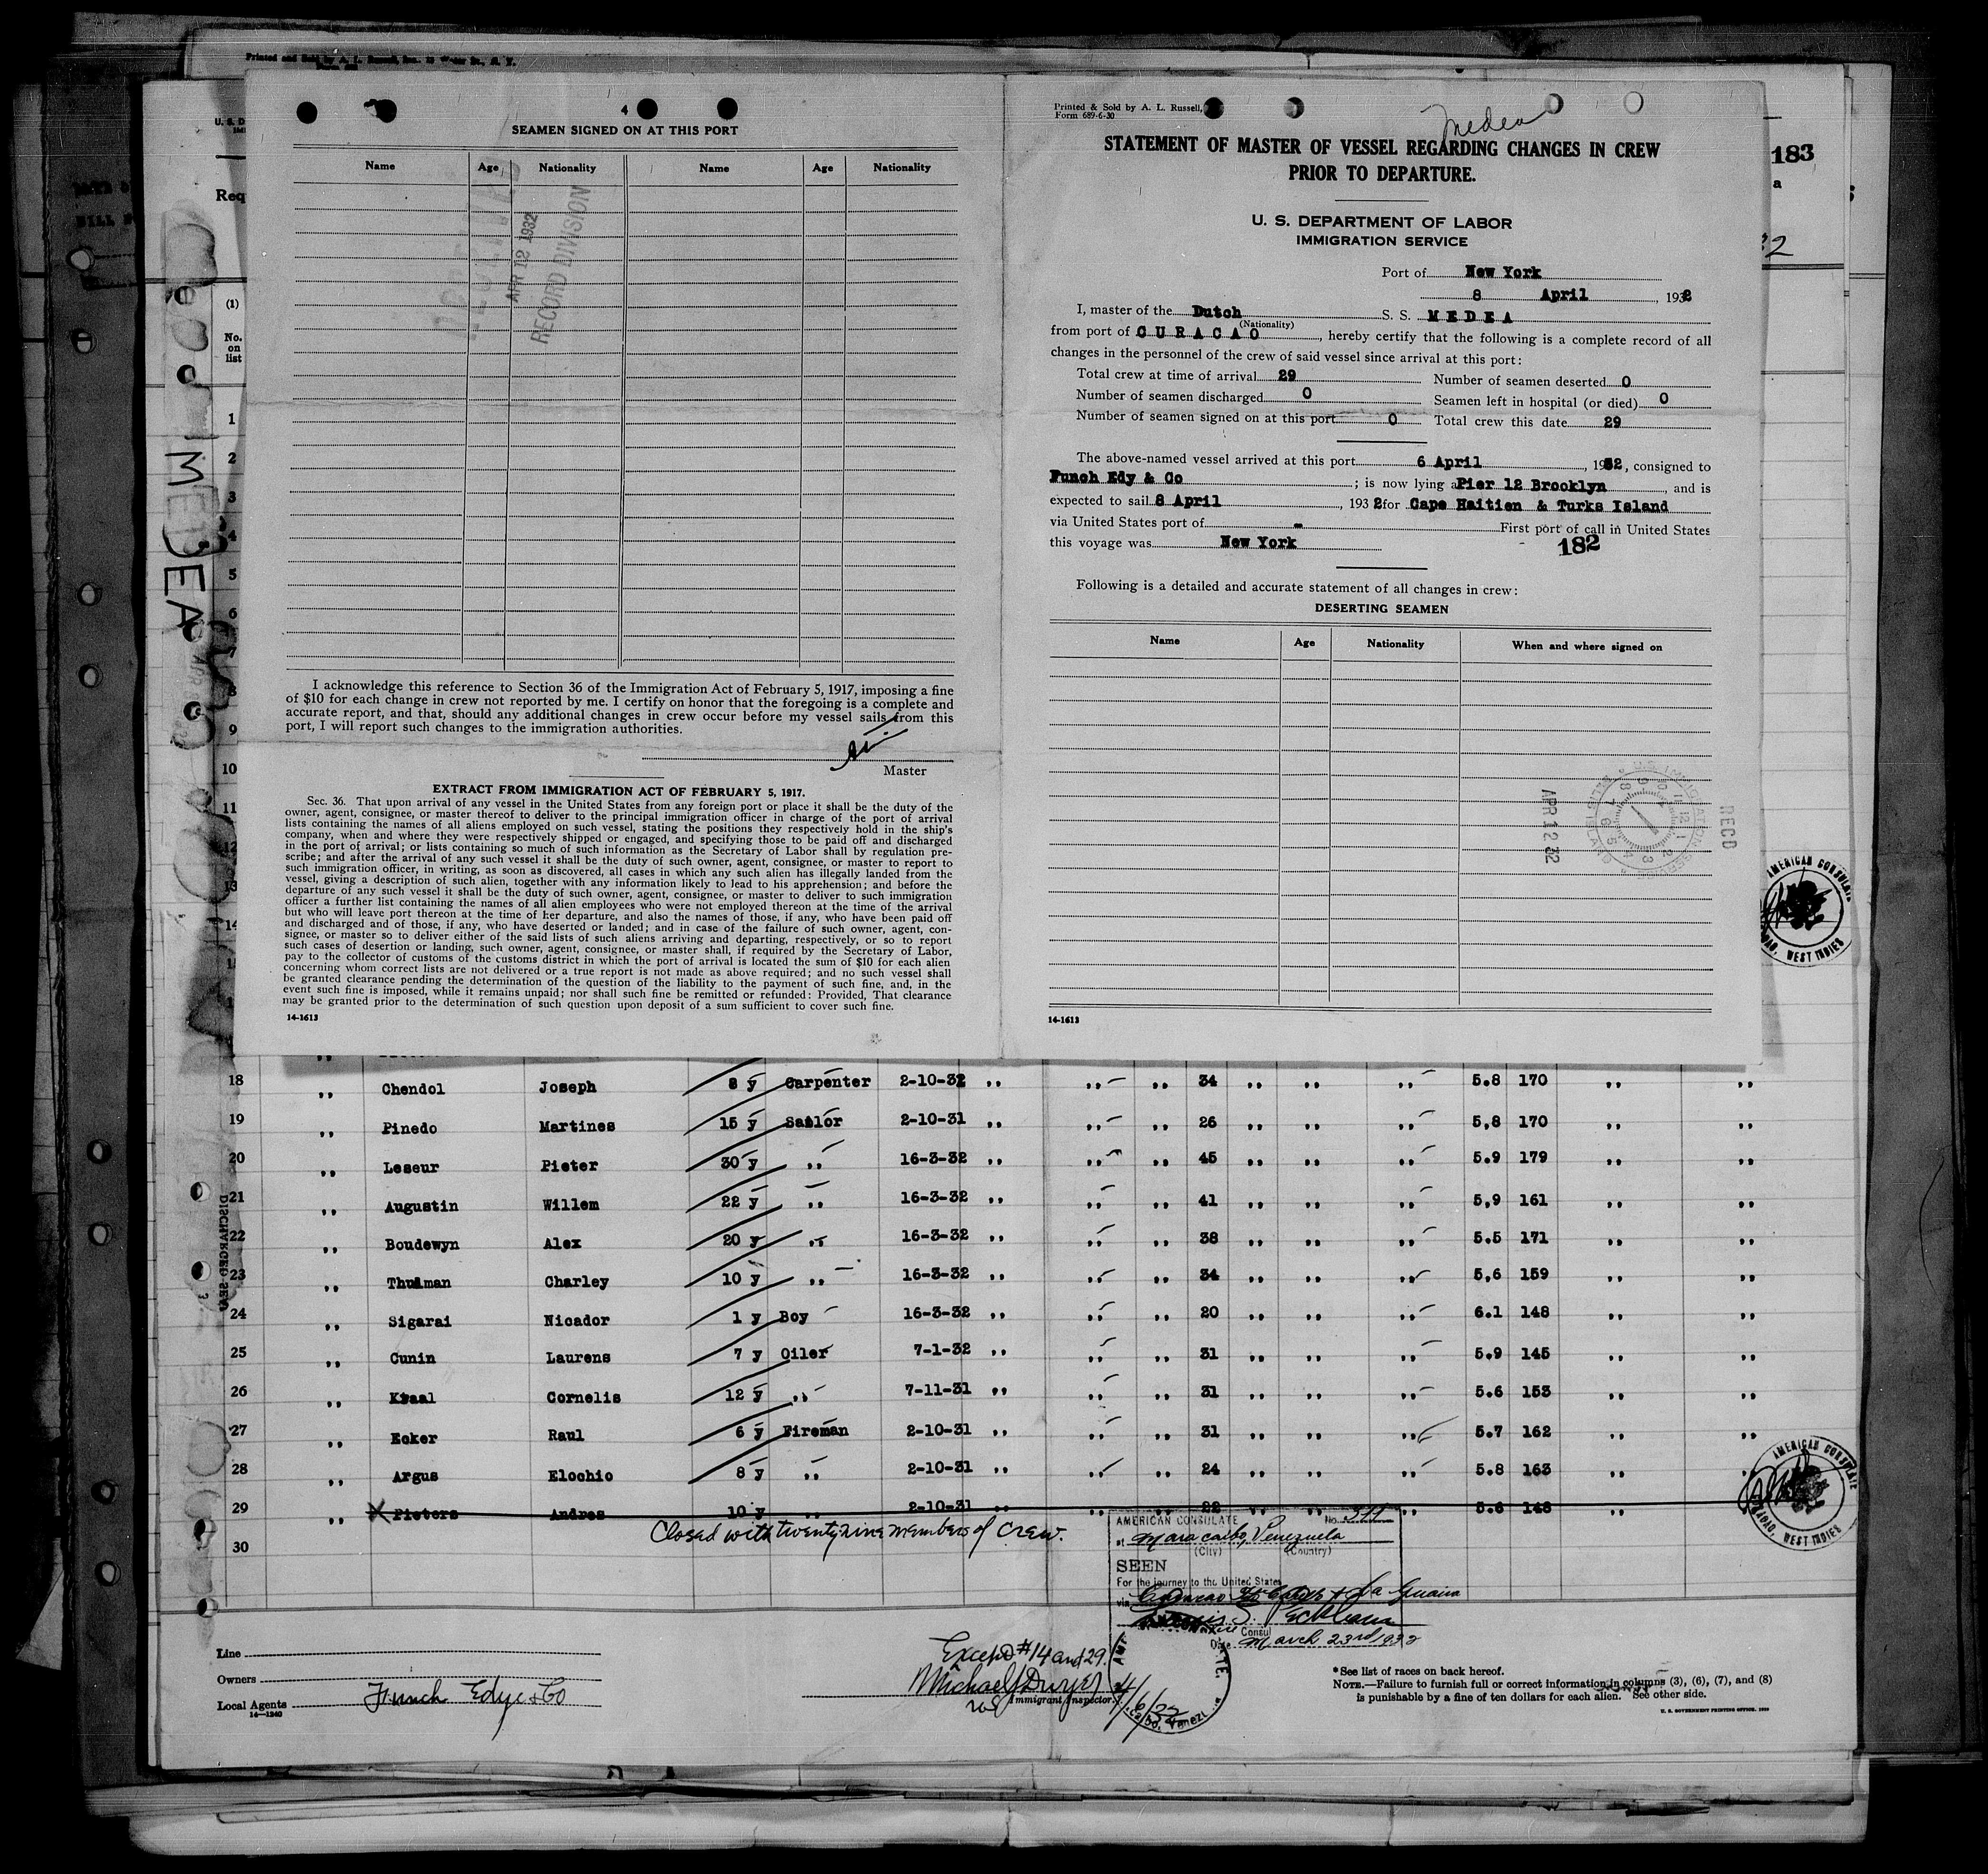 Printed and Sold by A. L. Russell, Inc.
4
SEAMEN SIGNED ON AT THIS PORT
Name Age Nationality Name Age Nationality
APR 12 1932
RECORD DIVISION
I acknowledge this reference to Section 36 of the Immigration Act of February 5, 1917, imposing a fine
of $10 for each change in crew not reported by me. I certify on honor that the foregoing is a complete and
accurate report, and that, should any additional changes in crew occur before my vessel sails from this
port, I will report such changes to the immigration authorities.
Master
EXTRACT FROM IMMIGRATION ACT OF FEBRUARY 5, 1917.
Sec. 36. That upon arrival of any vessel in the United States from any foreign port or place it shall be the duty of the
owner, agent, consignee, or master thereof to deliver to the principal immigration officer in charge of the port of arrival
lists containing the names of all aliens employed on such vessel, stating the positions they respectively hold in the ship's
company, when and where they were respectively shipped or engaged, and specifying those to be paid off and discharged
in the port of arrival; or lists containing so much of such information as the Secretary of Labor shall by regulation pre-
scribe; and after the arrival of any such vessel it shall be the duty of such owner, agent, consignee, or master to report to
such immigration officer, in writing, as soon as discovered, all cases in which any such alien has illegally landed from the
vessel, giving a description of such alien, together with any information likely to lead to his apprehension; and before the
departure of any such vessel it shall be the duty of such owner, agent, consignee, or master to deliver to such immigration
officer a further list containing the names of all alien employees who were not employed thereon at the time of the arrival
but who will leave port thereon at the time of her departure, and also the names of those, if any, who have been paid off
and discharged and of those, if any, who have deserted or landed; and in case of the failure of such owner, agent, con-
signee, or master so to deliver either of the said lists of such aliens arriving and departing, respectively, or so to report
such cases of desertion or landing, such owner, agent, consignee, or master shall, if required by the Secretary of Labor,
pay to the collector of customs of the customs district in which the port of arrival is located the sum of $10 for each alien
concerning whom correct lists are not delivered or a true report is not made as above required; and no such vessel shall
be granted clearance pending the determination of the question of the liability to the payment of such fine, and, in the
event such fine is imposed, while it remains unpaid; nor shall such fine be remitted or refunded: Provided, That clearance
may be granted prior to the determination of such question upon deposit of a sum sufficient to cover such fine.
14-1613
Printed & Sold by A. L. Russell,
Form 689-6-30
Medea
STATEMENT OF MASTER OF VESSEL REGARDING CHANGES IN CREW
PRIOR TO DEPARTURE.
U. S. DEPARTMENT OF LABOR
IMMIGRATION SERVICE
Port of New York
8 April, 1932
I, master of the Dutch S. S. MEDEA
(Nationality)
from port of CURACAO, hereby certify that the following is a complete record of all
changes in the personnel of the crew of said vessel since arrival at this port:
Total crew at time of arrival 29 Number of seamen deserted 0
Number of seamen discharged 0 Seamen left in hospital (or died) 0
Number of seamen signed on at this port 0 Total crew this date 29
The above-named vessel arrived at this port 6 April, 1932, consigned to
Funch Edy & Co; is now lying a Pier 12 Brooklyn, and is
expected to sail 8 April, 1932 for Cape Haitien & Turks Island
via United States port of - First port of call in United States
this voyage was New York
182
Following is a detailed and accurate statement of all changes in crew:
DESERTING SEAMEN
Name Age Nationality When and where signed on
APR 12 32
RECD
14-1613
183
MEDEA
Req
(1)
No. on list
1
2
3
4
5
6
7
8
9
10
11
12
13
14
18 ,, Chendol Joseph 8 y Carpenter 2-10-32 ,, ,, ,, 34 ,, ,, ,, 5.8 170 ,, ,,
19 ,, Pinedo Martines 15 y Sailor 2-10-31 ,, ,, ,, 26 ,, ,, ,, 5,8 170 ,, ,,
20 ,, Leseur Pieter 30 y ,, 16-3-32 ,, ,, ,, 45 ,, ,, ,, 5.9 179 ,, ,,
21 ,, Augustin Willem 22 y ,, 16-3-32 ,, ,, ,, 41 ,, ,, ,, 5,9 161 ,, ,,
22 ,, Boudewyn Alex 20 y ,, 16-3-32 ,, ,, ,, 38 ,, ,, ,, 5.5 171 ,, ,,
23 ,, Charley 10 y ,, 16-3-32 ,, ,, ,, 34 ,, ,, ,, 5,6 159 ,, ,,
24 ,, Sigarai Nicador 1 y Boy 16-3-32 ,, ,, ,, 20 ,, ,, ,, 6.1 148 ,, ,,
25 ,, Cunin Laurens 7 y Oiler 7-1-32 ,, ,, ,, 31 ,, ,, ,, 5.9 145 ,, ,,
26 ,, Kraal Cornelis 12 y ,, 7-11-31 ,, ,, ,, 31 ,, ,, ,, 5.6 153 ,, ,,
27 ,, Ecker Raul 6 y Fireman 2-10-31 ,, ,, ,, 31 ,, ,, ,, 5.7 162 ,, ,,
28 ,, Argus Elochio 8 y ,, 2-10-31 ,, ,, ,, 24 ,, ,, ,, 5.8 163 ,, ,,
29 ,, X Pieters Andres 10 y ,, 2-10-31 ,, ,, ,, 22 ,, ,, ,, 5.6 148 ,, ,,
30
Closed with twenty nine members of crew.
AMERICAN CONSULATE No. 399
at Maracaibo, Venezuela
(City) (Country)
SEEN
For the journey to the United States
via Curacao Pto Cabello + La Guaira
Consul
Date March 23rd 1932
AMERICAN CONSULATE
CURACAO, WEST INDIES
AMERICAN CONSULATE
CURACAO, WEST INDIES
Line
Owners
Local Agents Funch Edye & Co
14—1240
Except #14 and 29.
Michael J Dwyer
Immigrant Inspector.
4/6/32
*See list of races on back hereof.
NOTE.—Failure to furnish full or correct information in columns (3), (6), (7), and (8)
is punishable by a fine of ten dollars for each alien. See other side.
U. S. GOVERNMENT PRINTING OFFICE